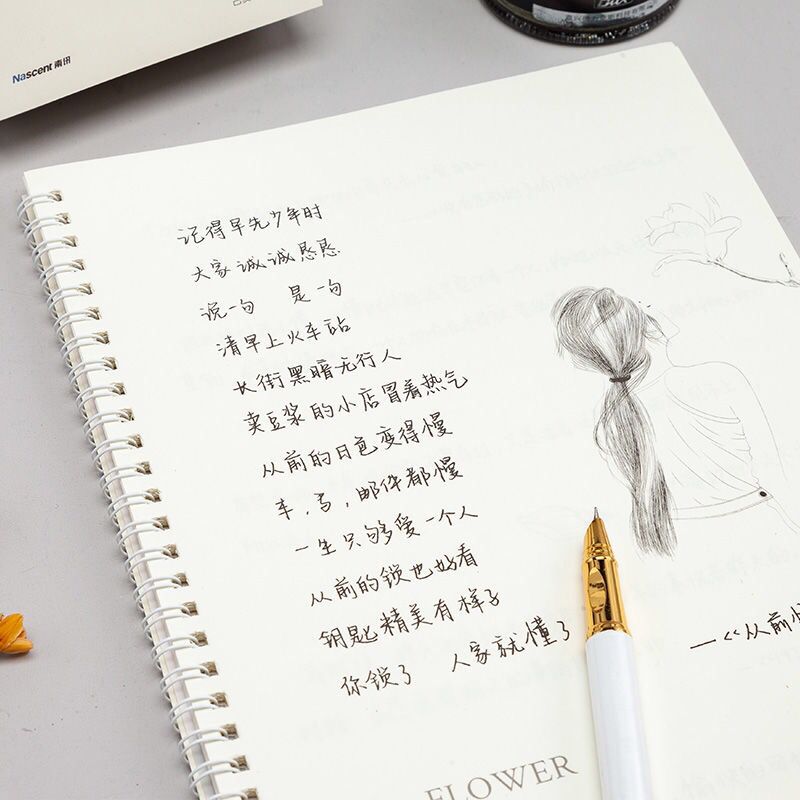 Nascent 南讯
记得早先少年时
大家诚诚恳恳
说一句 是一句
清早上火车站
长街黑暗无行人
卖豆浆的小店冒着热气
从前的日色变得慢
车,马,邮件都慢
一生只够爱一个人
从前的锁也好看
钥匙精美有样子
你锁了 人家就懂了
—《从前慢
FLOWER